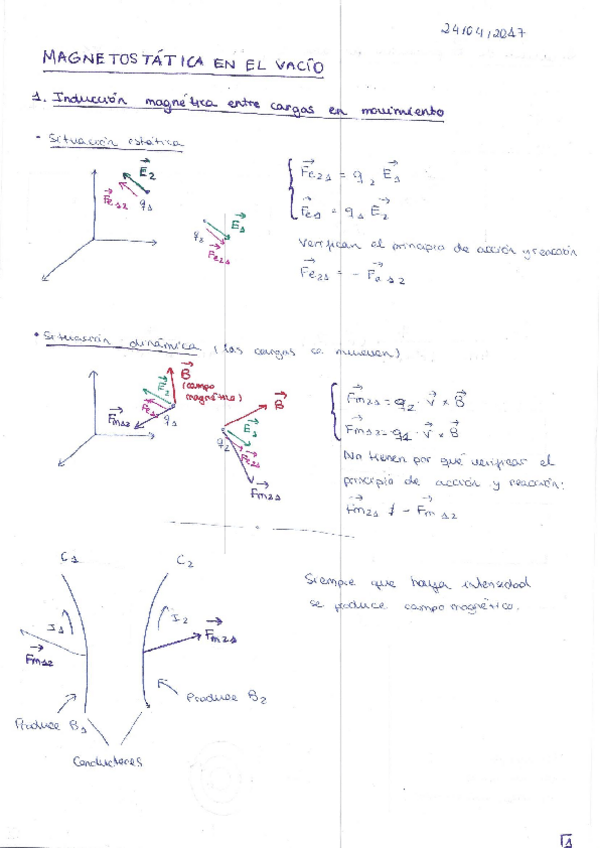 24/04/2017
MAGNETOSTÁTICA EN EL VACÍO
1. Inducción magnética entre cargas en movimiento
• Situación estática
E₂
Fe₁₂
q₁
q₂
E₁
Fe₂₁
Fe₂₁ = q₂ E₁
Fe₁ = q₁ E₂
Verifican el principio de acción y reacción
Fe₂₁ = - Fe₁₂
• Situación dinámica (las cargas se mueven)
B
(campo
magnético)
E₂
Fe₁₂
Fm₁₂
q₁
B
E₁
q₂
Fe₂₁
Fm₂₁
Fm₂₁ = q₂ · v x B
Fm₁₂ = q₁ · v x B
No tienen por qué verificar el
principio de acción y reacción:
Fm₂₁ ≠ - Fm₁₂
C₁ C₂
I₁ I₂
Fm₁₂ Fm₂₁
Produce B₁ Produce B₂
Conductores
Siempre que haya intensidad
se produce campo magnético.
1